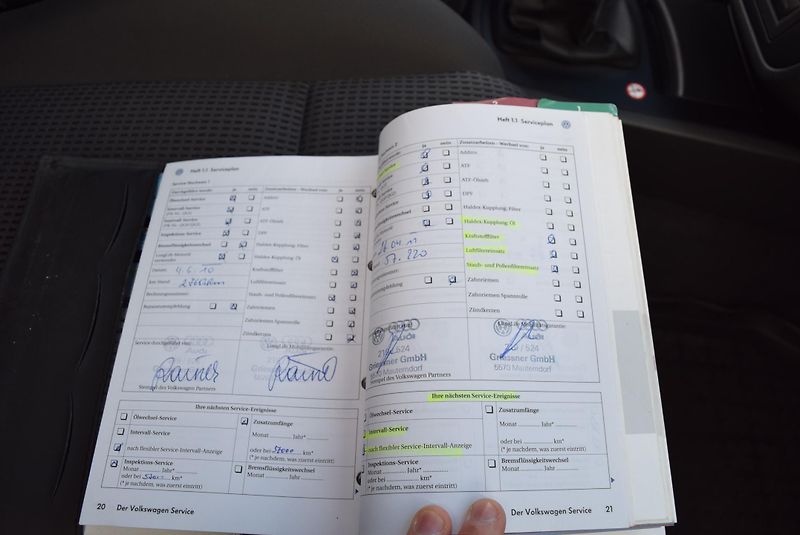 Heft 1.1 Serviceplan
Service-Nachweis 1
Durchgeführt wurde: ja nein Zusatzarbeiten - Wechsel von: ja nein
Ölwechsel-Service Addinv
Intervall-Service ATF
ATF-Ölsieb
Inspektions-Service DPF
Bremsflüssigkeitswechsel Haldex-Kupplung: Filter
LongLife-Motoröl verwendet Haldex-Kupplung: Öl
Datum: 4.6.10 Kraftstofffilter
km-Stand: Luftfiltereinsatz
Rechnungsnummer: Staub- und Pollenfiltereinsatz
Reparaturempfehlung Zahnriemen
Zahnriemen Spannrolle
Zündkerzen
Service durchgeführt von: LongLife Mobilitätsgarantie:
Audi
Rainer Rainer
Stempel des Volkswagen Partners
Ihre nächsten Service-Ereignisse
Ölwechsel-Service Zusatzumfänge
Monat Jahr*
Intervall-Service
nach flexibler Service-Intervall-Anzeige oder bei 57000 km*
(* je nachdem, was zuerst eintritt)
Inspektions-Service
Monat Jahr* Bremsflüssigkeitswechsel
oder bei 57000 km* Monat Jahr*
(* je nachdem, was zuerst eintritt)
20 Der Volkswagen Service
Heft 1.1 Serviceplan
ja nein Zusatzarbeiten - Wechsel von: ja nein
Addinv
ATF
ATF-Ölsieb
DPF
Haldex-Kupplung: Filter
Haldex-Kupplung: Öl
04.11 Kraftstofffilter
57.220 Luftfiltereinsatz
Staub- und Pollenfiltereinsatz
Zahnriemen
Zahnriemen Spannrolle
Zündkerzen
LongLife Mobilitätsgarantie:
Audi Audi
218 / 524
Griessner GmbH Griessner GmbH
5570 Mauterndorf 5570 Mauterndorf
Stempel des Volkswagen Partners
Ihre nächsten Service-Ereignisse
Ölwechsel-Service Zusatzumfänge
Monat Jahr*
Intervall-Service
nach flexibler Service-Intervall-Anzeige oder bei km*
(* je nachdem, was zuerst eintritt)
Inspektions-Service
Monat Jahr* Bremsflüssigkeitswechsel
oder bei km* Monat Jahr*
(* je nachdem, was zuerst eintritt)
Der Volkswagen Service 21